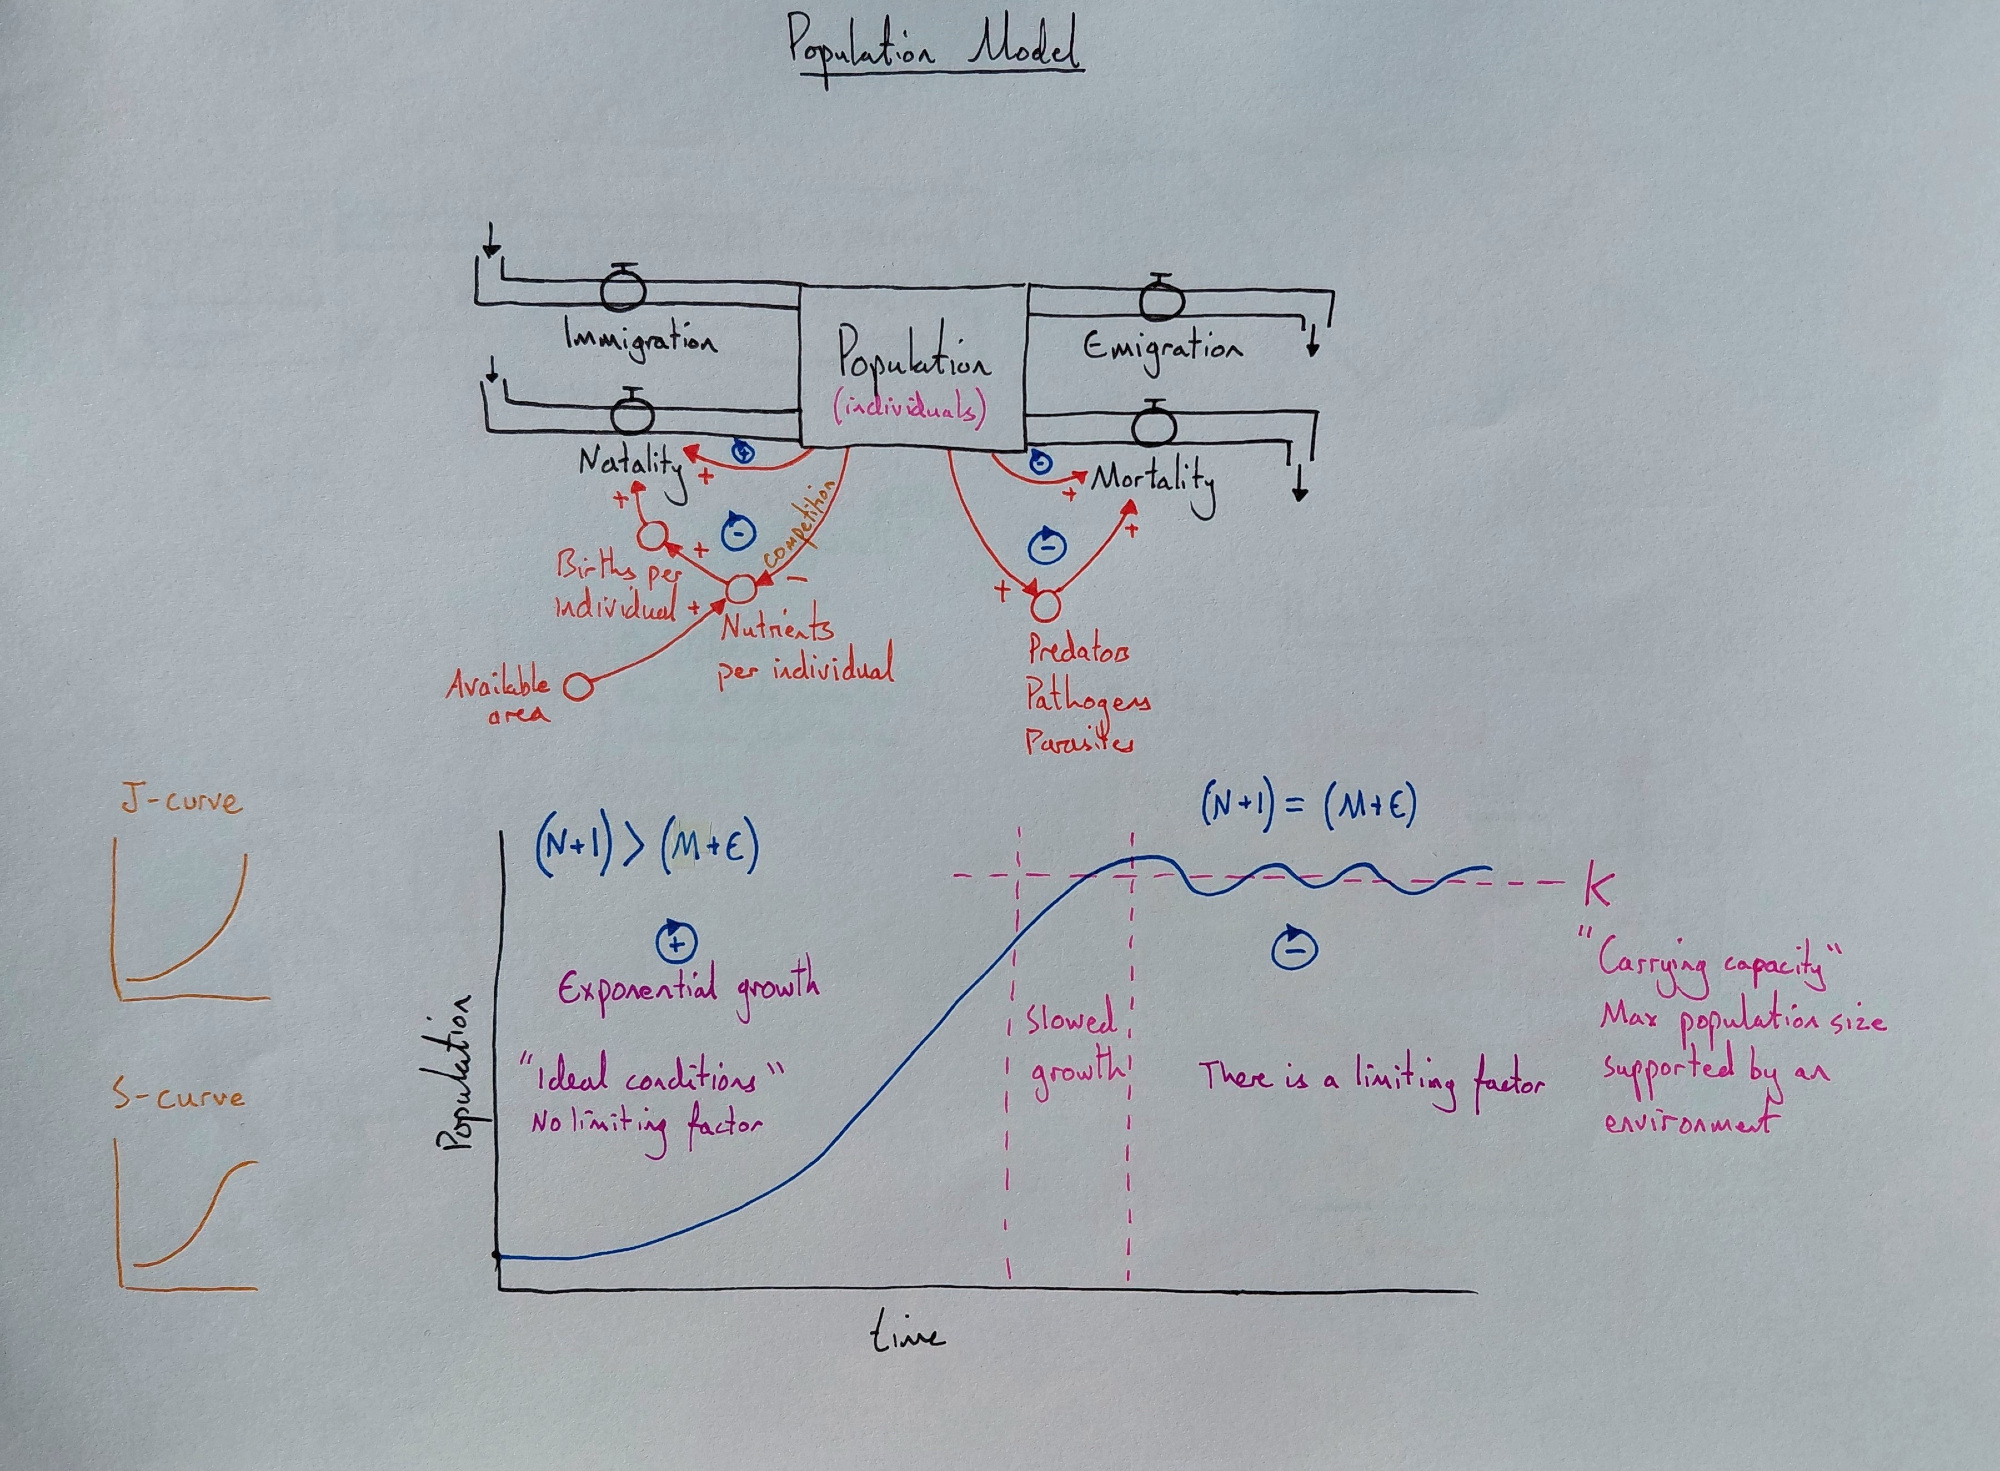 Population Model
Immigration
Population
(individuals)
Emigration
Natality
+
+
Mortality
-
+
+
+
-
competition
-
+
-
+
Births per
individual
+
-
+
Nutrients
per individual
Available
area
Predators
Pathogens
Parasites
J-curve
S-curve
(N+I) > (M+E)
(N+I) = (M+E)
K
+
Exponential growth
"Ideal conditions"
No limiting factor
Slowed
growth
-
There is a limiting factor
"Carrying capacity"
Max population size
supported by an
environment
Population
time